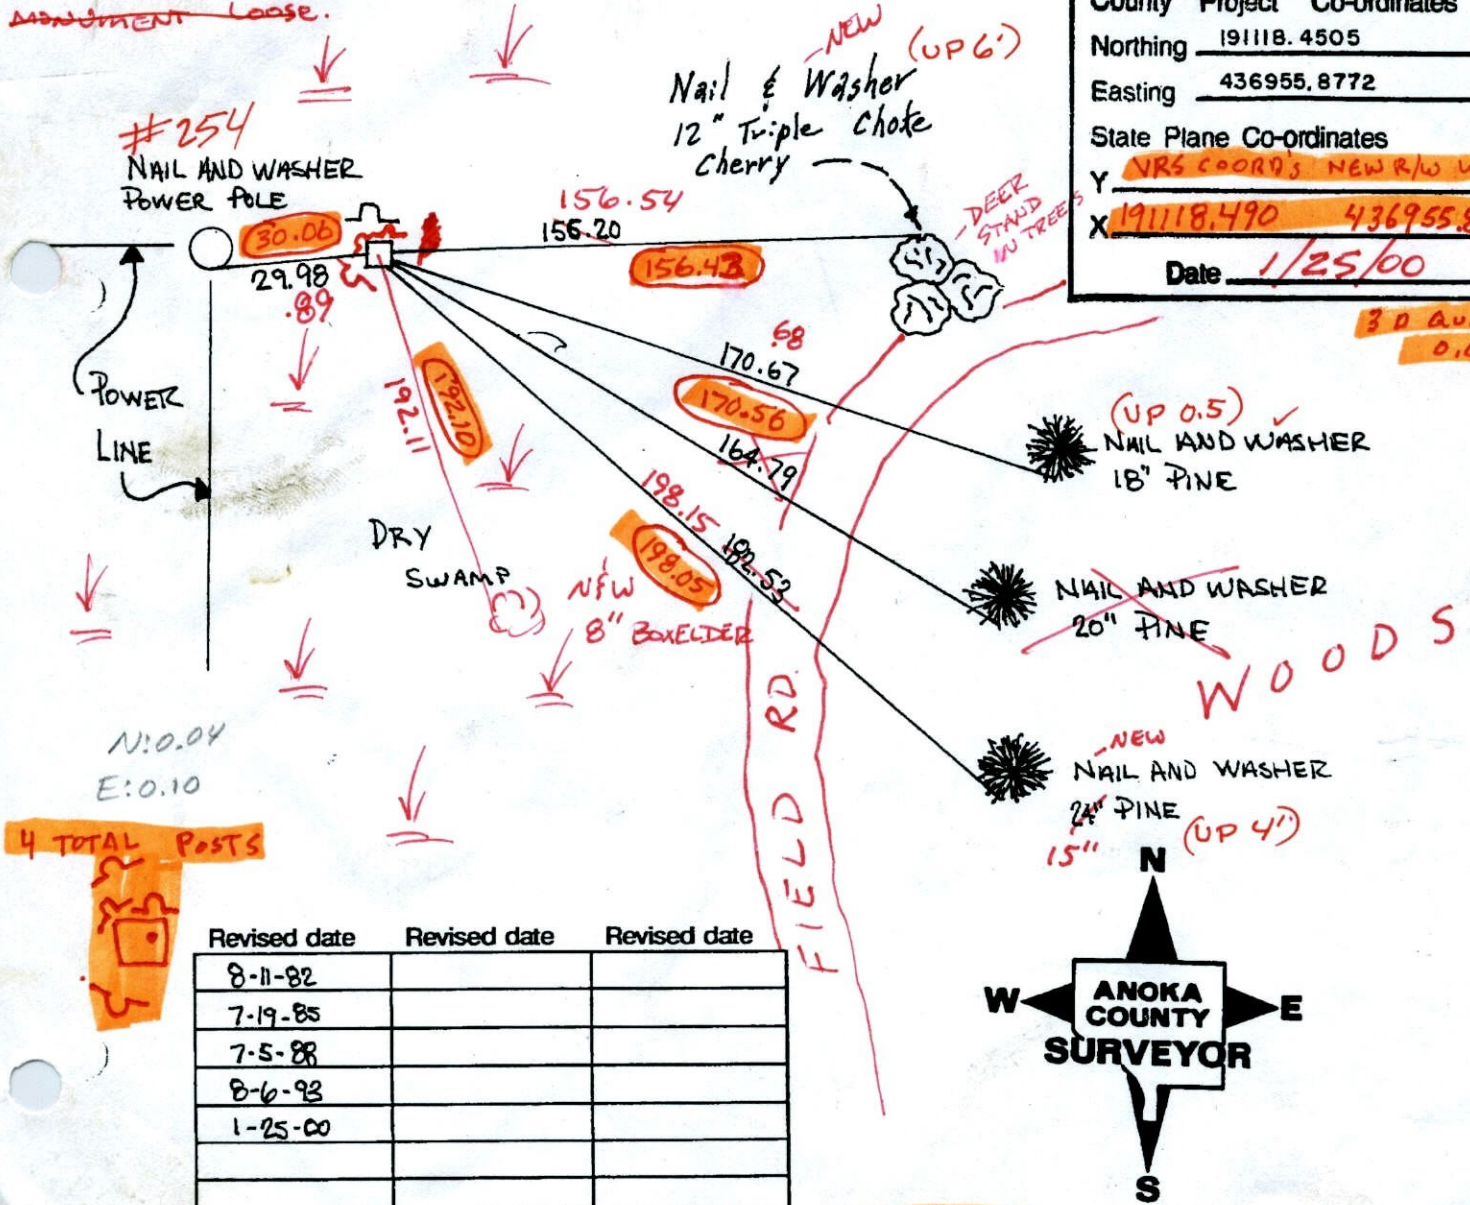 MONUMENT LOOSE.
County Project Co-ordinates
Northing 191118.4505
Easting 436955.8772
State Plane Co-ordinates
Y VRS COORD'S NEW R/W
X 191118.490 436955.8
Date 1/25/00
3 D
NEW
(UP 6')
Nail & Washer
12" Triple Choke
Cherry
#254
NAIL AND WASHER
POWER POLE
30.06
29.98
.89
156.54
156.20
156.43
DEER
STAND
IN TREES
POWER
LINE
192.11
192.10
.68
170.67
170.56
164.79
198.15
182.53
198.05
(UP 0.5) ✓
NAIL AND WASHER
18" PINE
DRY
SWAMP
N&W
8" BOXELDER
NAIL AND WASHER
20" PINE
WOODS
NEW
NAIL AND WASHER
24" PINE
15"
(UP 4')
FIELD RD
N:0.04
E:0.10
4 TOTAL POSTS
Revised date Revised date Revised date
8-11-82
7-19-85
7-5-88
8-6-93
1-25-00
N
W ANOKA E
COUNTY
SURVEYOR
S